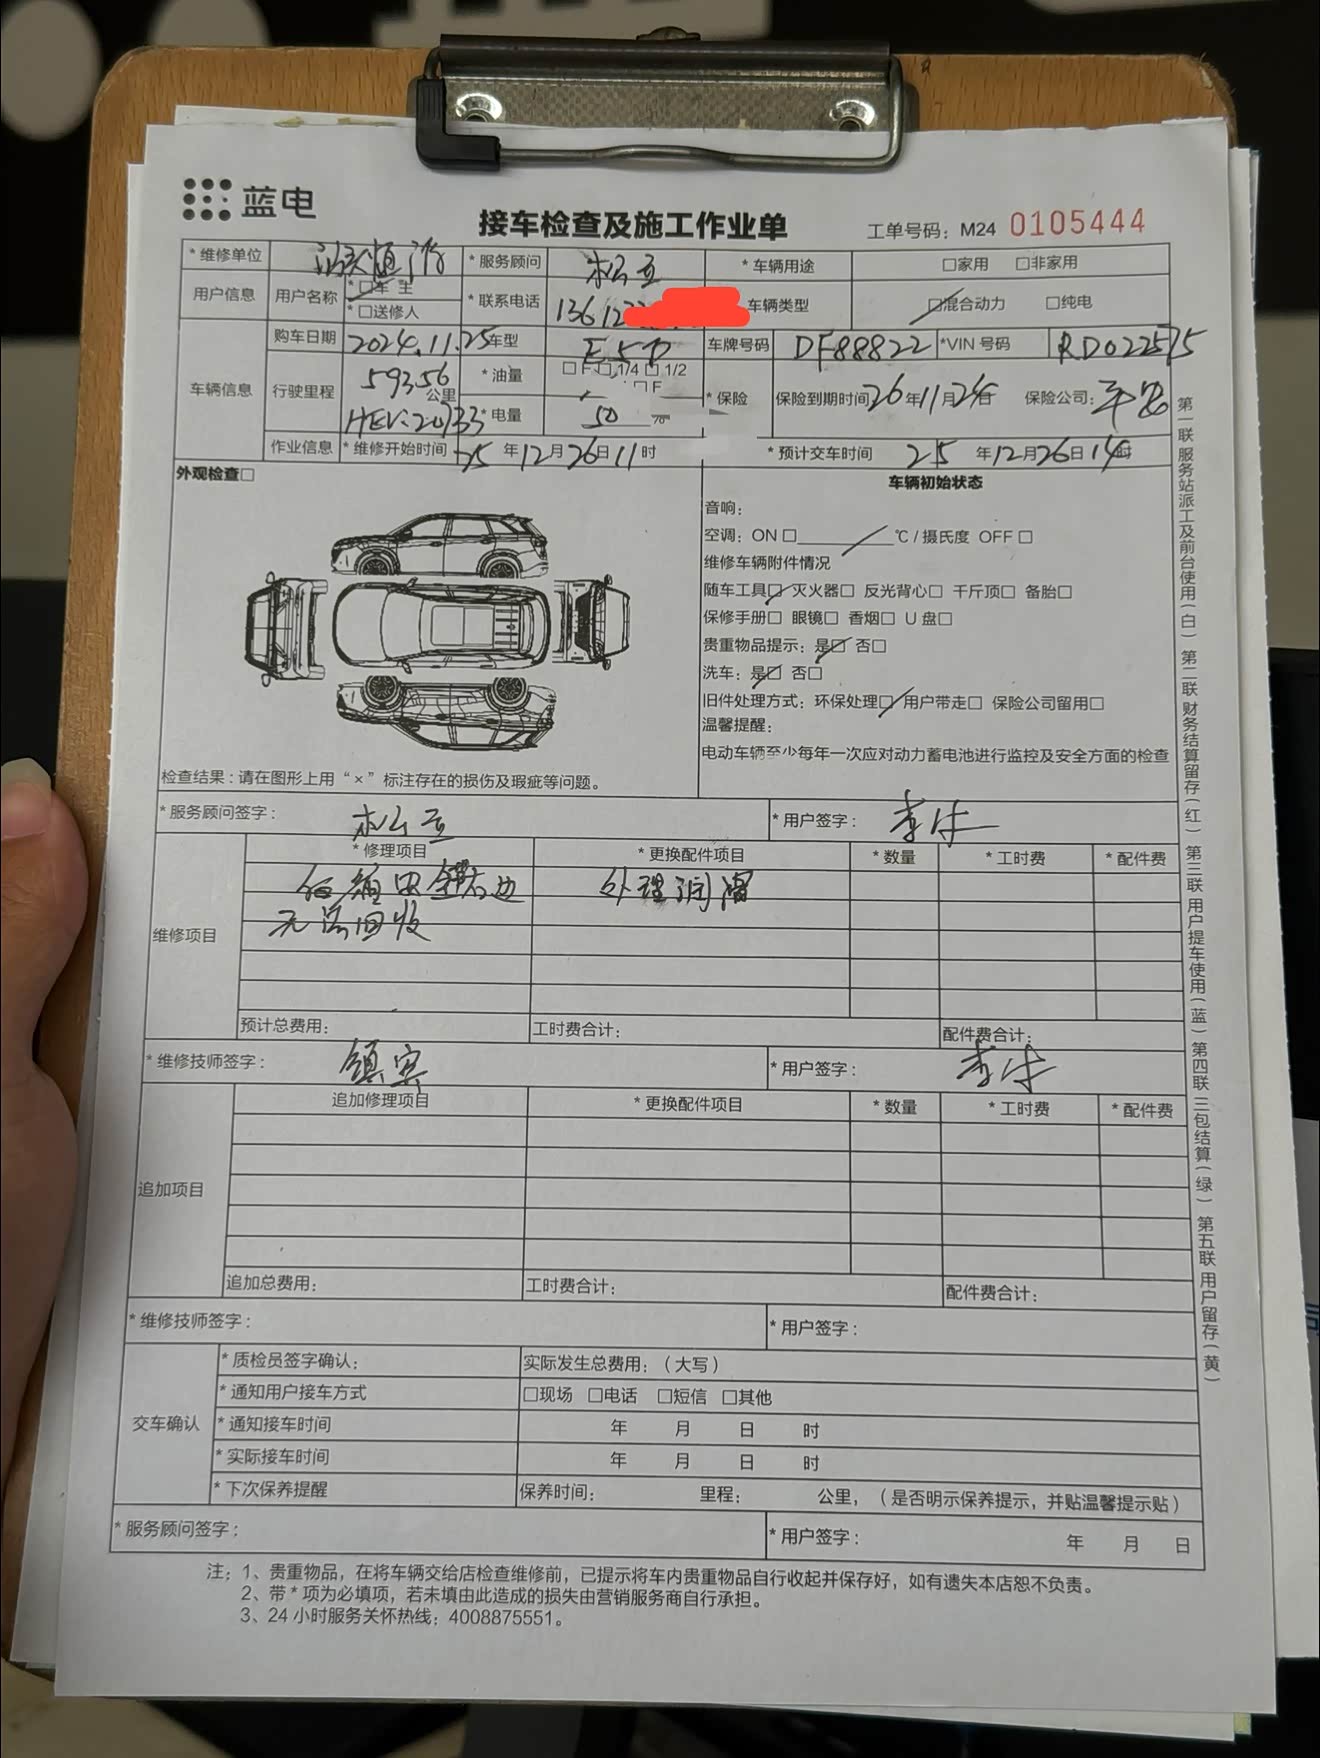 蓝电
接车检查及施工作业单
工单号码：M24 0105444
*维修单位 *服务顾问 松立 *车辆用途 □家用 □非家用
用户信息 用户名称 *□车主 *□送修人 *联系电话 13612 车辆类型 □混合动力 □纯电
购车日期 2024.11.25 车型 E5P 车牌号码 DF88822 *VIN 号码 RD022575
车辆信息 行驶里程 59356 公里 *油量 □F □1/4 □1/2 □F *保险 保险到期时间 26年11月2 保险公司：平安
HEV:20733 *电量 50 %
作业信息 *维修开始时间 25年12月26日11时 *预计交车时间 25年12月26日14时
外观检查□
车辆初始状态
音响：
空调：ON □ ℃/摄氏度 OFF □
维修车辆附件情况
随车工具□ 灭火器□ 反光背心□ 千斤顶□ 备胎□
保修手册□ 眼镜□ 香烟□ U盘□
贵重物品提示：是□ 否□
洗车：是□ 否□
旧件处理方式：环保处理□ 用户带走□ 保险公司留用□
温馨提醒：
电动车辆至少每年一次应对动力蓄电池进行监控及安全方面的检查
检查结果：请在图形上用“×”标注存在的损伤及瑕疵等问题。
*服务顾问签字： 松立 *用户签字： 李
维修项目 *修理项目 *更换配件项目 *数量 *工时费 *配件费
右边 处理润滑
无法回收
预计总费用： 工时费合计： 配件费合计：
*维修技师签字： 镇宾 *用户签字： 李
追加项目 追加修理项目 *更换配件项目 *数量 *工时费 *配件费
追加总费用： 工时费合计： 配件费合计：
*维修技师签字： *用户签字：
交车确认
*质检员签字确认： 实际发生总费用：（大写）
*通知用户接车方式 □现场 □电话 □短信 □其他
*通知接车时间 年 月 日 时
*实际接车时间 年 月 日 时
*下次保养提醒 保养时间： 里程： 公里，（是否明示保养提示，并贴温馨提示贴）
*服务顾问签字： *用户签字： 年 月 日
注：1、贵重物品，在将车辆交给店检查维修前，已提示将车内贵重物品自行收起并保存好，如有遗失本店恕不负责。
2、带*项为必填项，若未填由此造成的损失由营销服务商自行承担。
3、24小时服务关怀热线：4008875551。
第一联 服务站派工及前台使用（白） 第二联 财务结算留存（红） 第三联 用户提车使用（蓝） 第四联 三包结算（绿） 第五联 用户留存（黄）